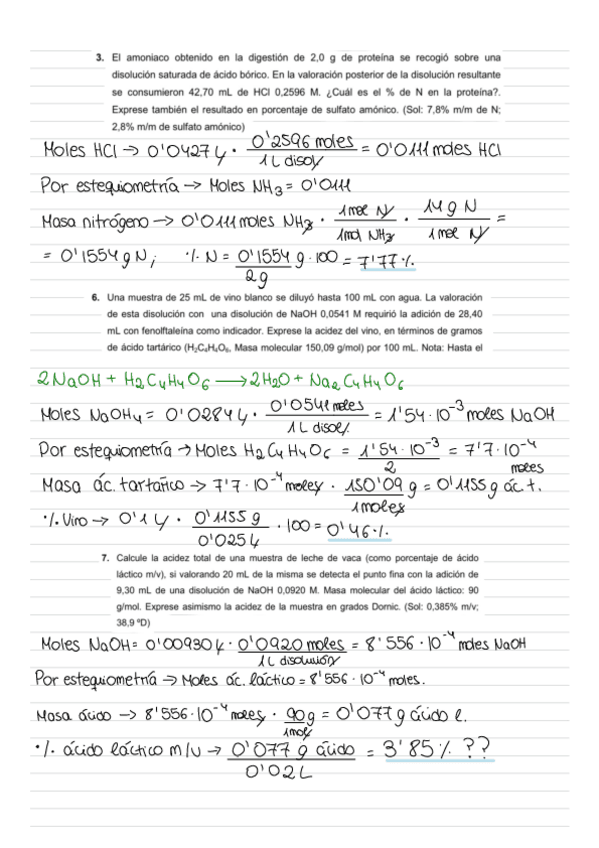 3. El amoniaco obtenido en la digestión de 2,0 g de proteína se recogió sobre una
disolución saturada de ácido bórico. En la valoración posterior de la disolución resultante
se consumieron 42,70 mL de HCl 0,2596 M. ¿Cuál es el % de N en la proteína?.
Exprese también el resultado en porcentaje de sulfato amónico. (Sol: 7,8% m/m de N;
2,8% m/m de sulfato amónico)
Moles HCl → 0'0427 L · 0'2596 moles / 1 L disol = 0'0111 moles HCl
Por estequiometría → Moles NH3 = 0'0111
Masa nitrógeno → 0'0111 moles NH3 · 1 mol N / 1 mol NH3 · 14 g N / 1 mol N =
= 0'1554 g N; % N = 0'1554 / 2g g · 100 = 7'77 %
6. Una muestra de 25 mL de vino blanco se diluyó hasta 100 mL con agua. La valoración
de esta disolución con una disolución de NaOH 0,0541 M requirió la adición de 28,40
mL con fenolftaleína como indicador. Exprese la acidez del vino, en términos de gramos
de ácido tartárico (H2C4H4O6, Masa molecular 150,09 g/mol) por 100 mL. Nota: Hasta el
2NaOH + H2C4H4O6 → 2H2O + Na2C4H4O6
Moles NaOH = 0'0284 L · 0'0541 moles / 1 L disol. = 1'54 · 10⁻³ moles NaOH
Por estequiometría → Moles H2C4H4O6 = 1'54 · 10⁻³ / 2 = 7'7 · 10⁻⁴ moles
Masa ác. tartárico → 7'7 · 10⁻⁴ moles · 150'09 / 1 moles g = 0'1155 g ác t.
% Vino → 0'1 L · 0'1155 g / 0'025 L · 100 = 0'46 %
7. Calcule la acidez total de una muestra de leche de vaca (como porcentaje de ácido
láctico m/v), si valorando 20 mL de la misma se detecta el punto fina con la adición de
9,30 mL de una disolución de NaOH 0,0920 M. Masa molecular del ácido láctico: 90
g/mol. Exprese asimismo la acidez de la muestra en grados Dornic. (Sol: 0,385% m/v;
38,9 ºD)
Moles NaOH = 0'00930 L · 0'0920 moles / 1 L disolución = 8'556 · 10⁻⁴ moles NaOH
Por estequiometría → Moles ác. láctico = 8'556 · 10⁻⁴ moles.
Masa ácido → 8'556 · 10⁻⁴ moles · 90g / 1 mol = 0'077 g ácido l.
% ácido láctico m/v → 0'077 g ácido / 0'02 L = 3'85 % ??